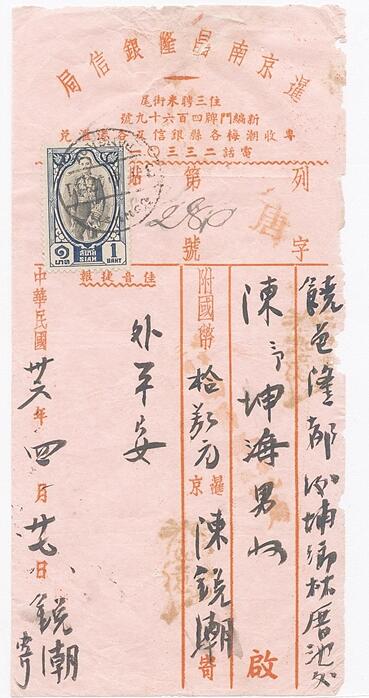 暹京南昌隆銀信局
住三聘米街尾
新編門牌四百六十九號
專收潮梅各縣銀信及香港滙兌
電話二三三
列 字
第 280 號
唐
饒邑隆都後埔鄉林厝池交
陳 坤海男收 啟
附國幣拾萬元
暹京 陳銳潮 寄
外平安
佳音捷報
中華民國卅六年四月廿七日 銳潮寄
๑ บาท
SIAM
1 BAHT